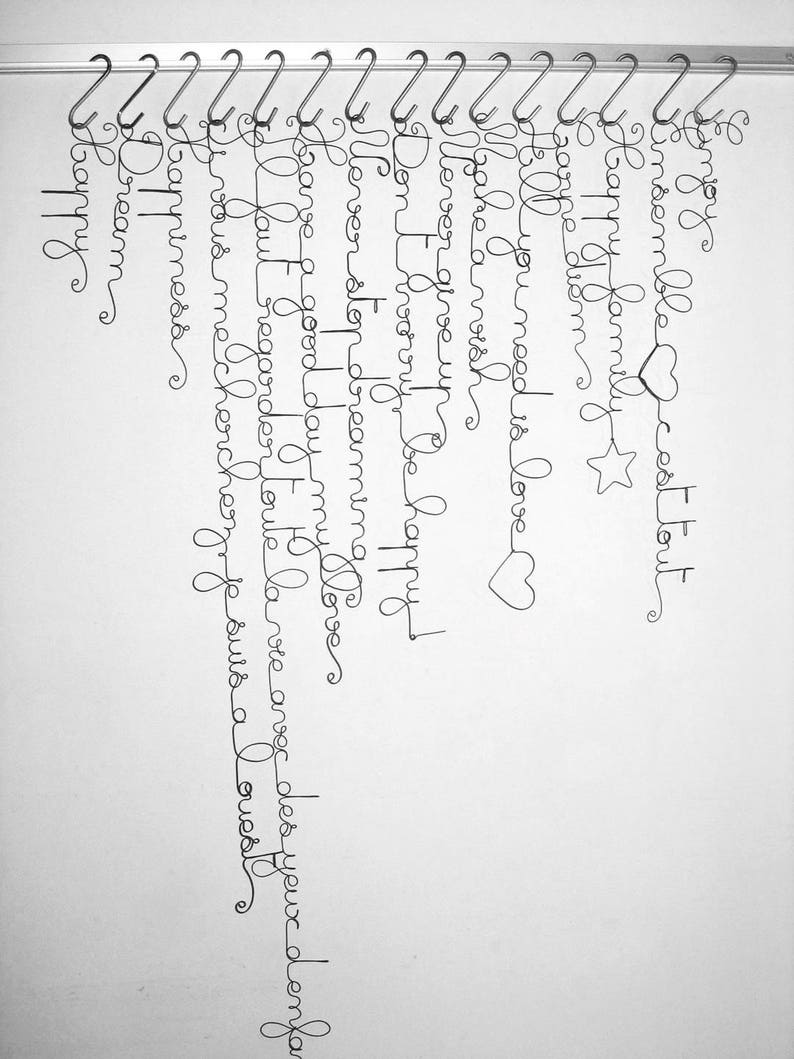 Happy
Dream
Happiness
Si vous me cherchez, je suis a louest
Il faut regarder toute la vie avec des yeux denfa
Have a good day my love
Never stop dreaming
Dont worry, be happy!
Never give up
Make a wish
All you need is love
Carpe diem
Happy family
ensemble cest tout
Enjoy